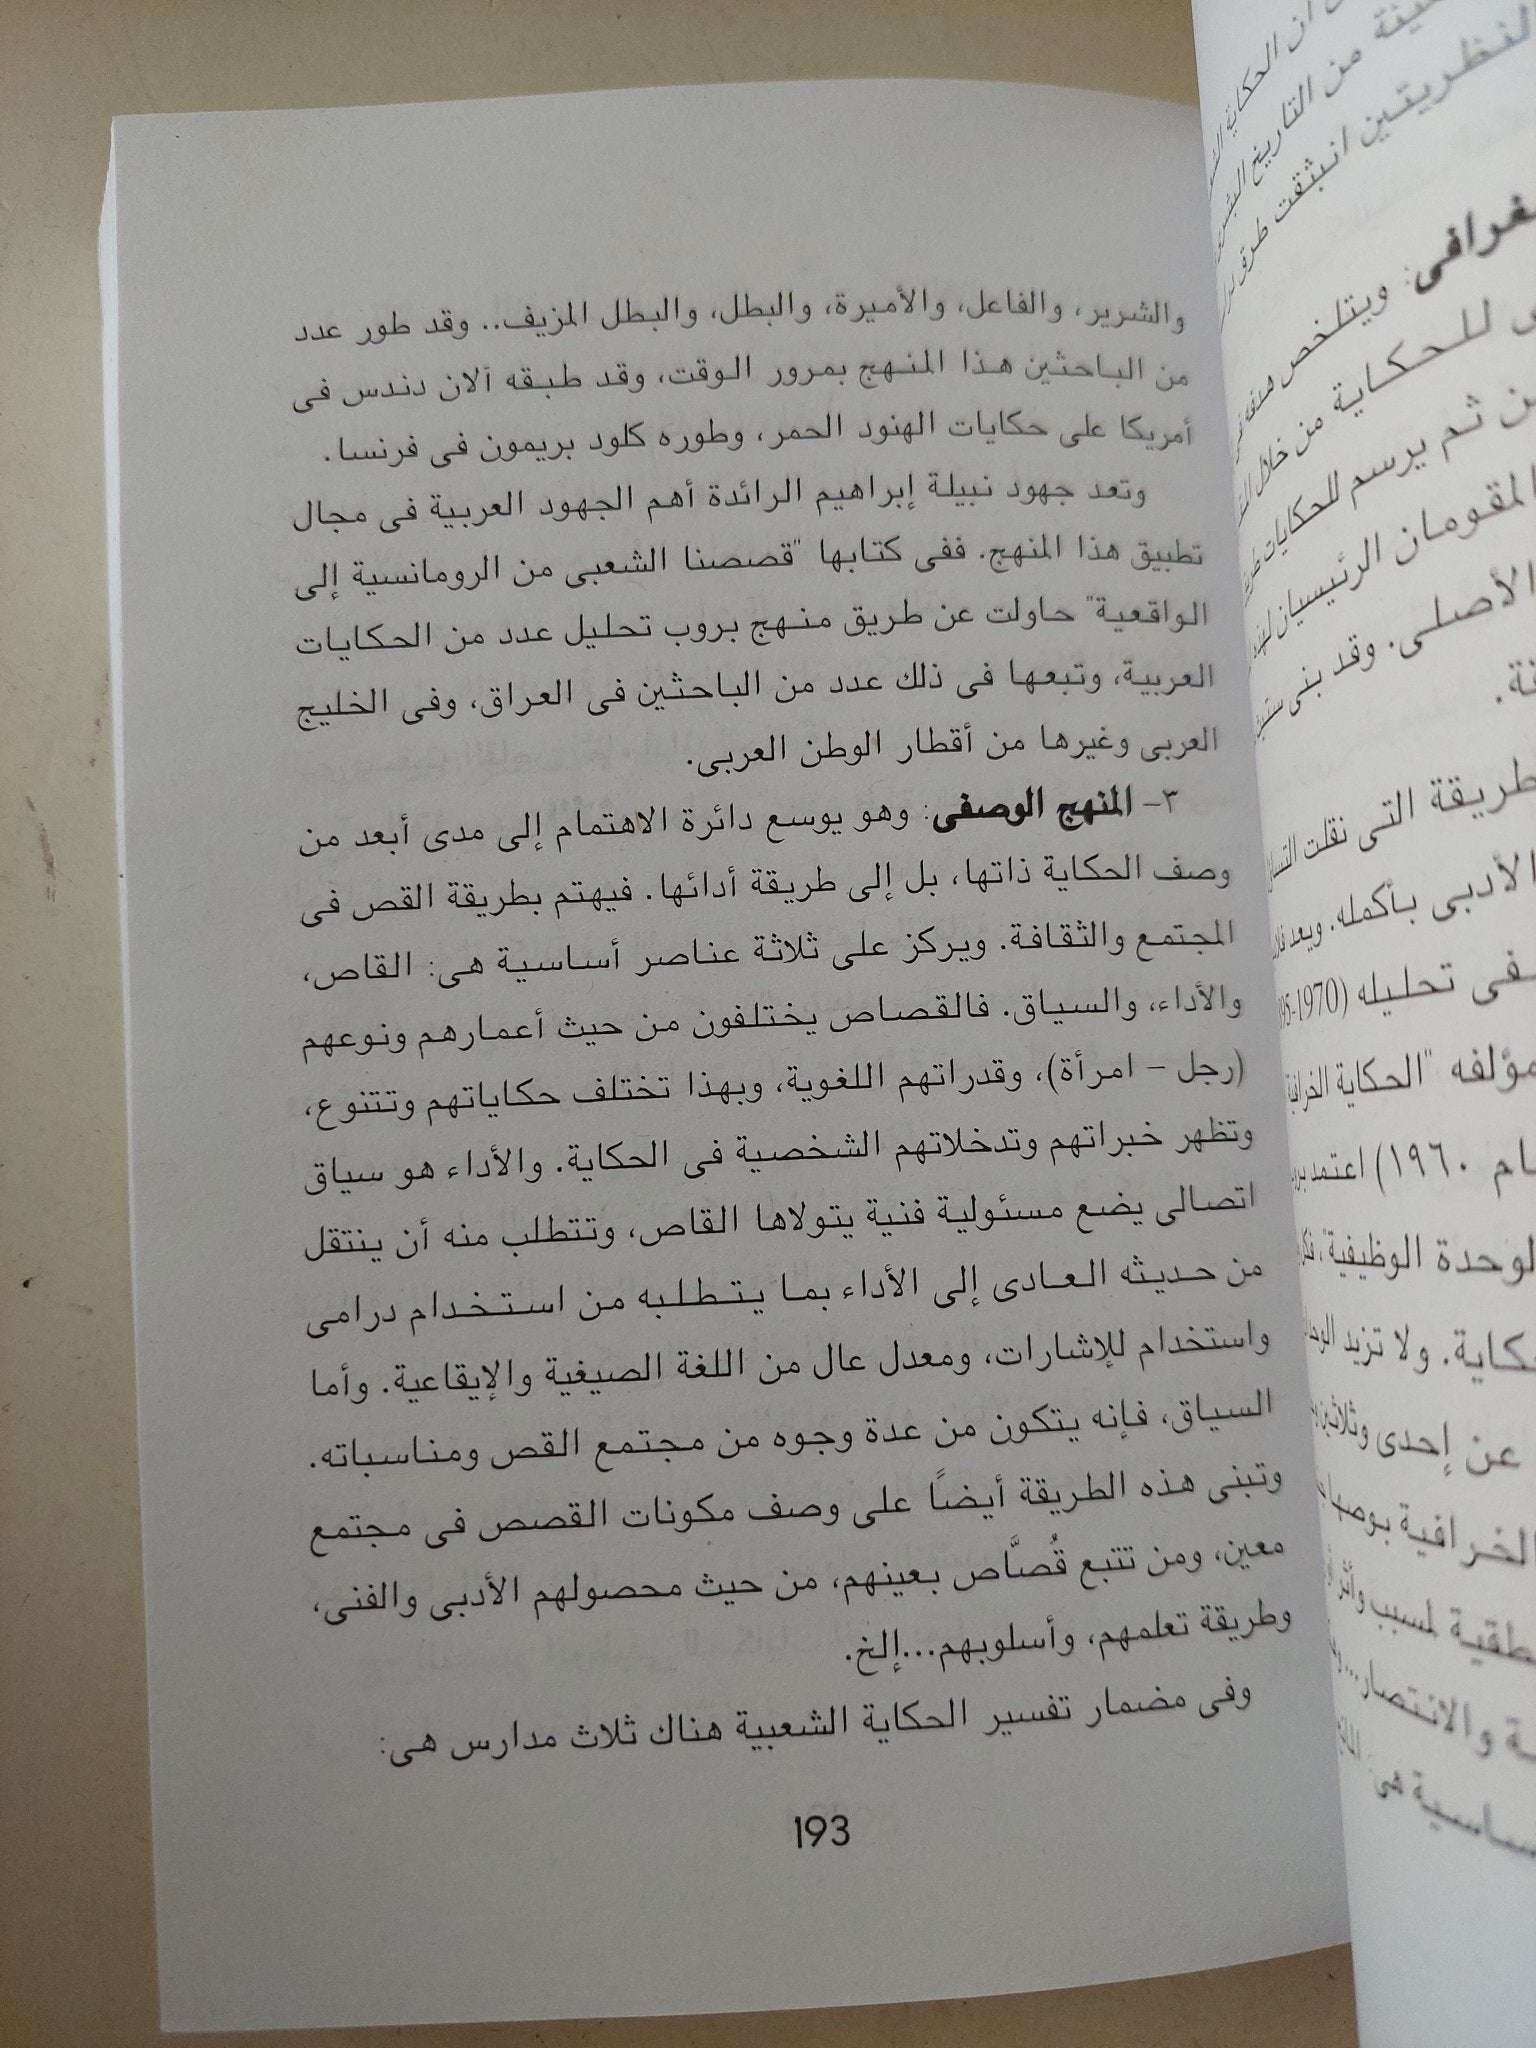 والشرير، والفاعل، والأميرة، والبطل، والبطل المزيف.. وقد طور عدد
من الباحثين هذا المنهج بمرور الوقت، وقد طبقه آلان دندس فى
أمريكا على حكايات الهنود الحمر، وطوره كلود بريمون فى فرنسا.
وتعد جهود نبيلة إبراهيم الرائدة أهم الجهود العربية فى مجال
تطبيق هذا المنهج. ففى كتابها "قصصنا الشعبى من الرومانسية إلى
الواقعية" حاولت عن طريق منهج بروب تحليل عدد من الحكايات
العربية، وتبعها فى ذلك عدد من الباحثين فى العراق، وفى الخليج
العربى وغيرها من أقطار الوطن العربى.
٣- المنهج الوصفى: وهو يوسع دائرة الاهتمام إلى مدى أبعد من
وصف الحكاية ذاتها، بل إلى طريقة أدائها. فيهتم بطريقة القص فى
المجتمع والثقافة. ويركز على ثلاثة عناصر أساسية هى: القاص،
والأداء، والسياق. فالقصاص يختلفون من حيث أعمارهم ونوعهم
(رجل – امرأة)، وقدراتهم اللغوية، وبهذا تختلف حكاياتهم وتتنوع،
وتظهر خبراتهم وتدخلاتهم الشخصية فى الحكاية. والأداء هو سياق
اتصالى يضع مسئولية فنية يتولاها القاص، وتتطلب منه أن ينتقل
من حديثه العادى إلى الأداء بما يتطلبه من استخدام درامى
واستخدام للإشارات، ومعدل عال من اللغة الصيغية والإيقاعية. وأما
السياق، فإنه يتكون من عدة وجوه من مجتمع القص ومناسباته.
وتبنى هذه الطريقة أيضاً على وصف مكونات القصص فى مجتمع
معين، ومن تتبع قُصَّاص بعينهم، من حيث محصولهم الأدبى والفنى،
وطريقة تعلمهم، وأسلوبهم...إلخ.
وفى مضمار تفسير الحكاية الشعبية هناك ثلاث مدارس هى:
193
أن الحكاية
من التاريخ
النظريتين انبثقت طرق
ويتلخص
للحكاية من خلال
ثم يرسم للحكايات
المقومان الرئيسيان
الأصلى. وقد بنى
طريقة التى نقلت
الأدبى بأكمله. ويعد
فى تحليله
مؤلفه "الحكاية الخرافية
١٩٦٠) اعتمد
الوحدة الوظيفية"،
ولا تزيد
عن إحدى وثلاثين
الخرافية بوصفها
لمسبب
والانتصار...
هى: